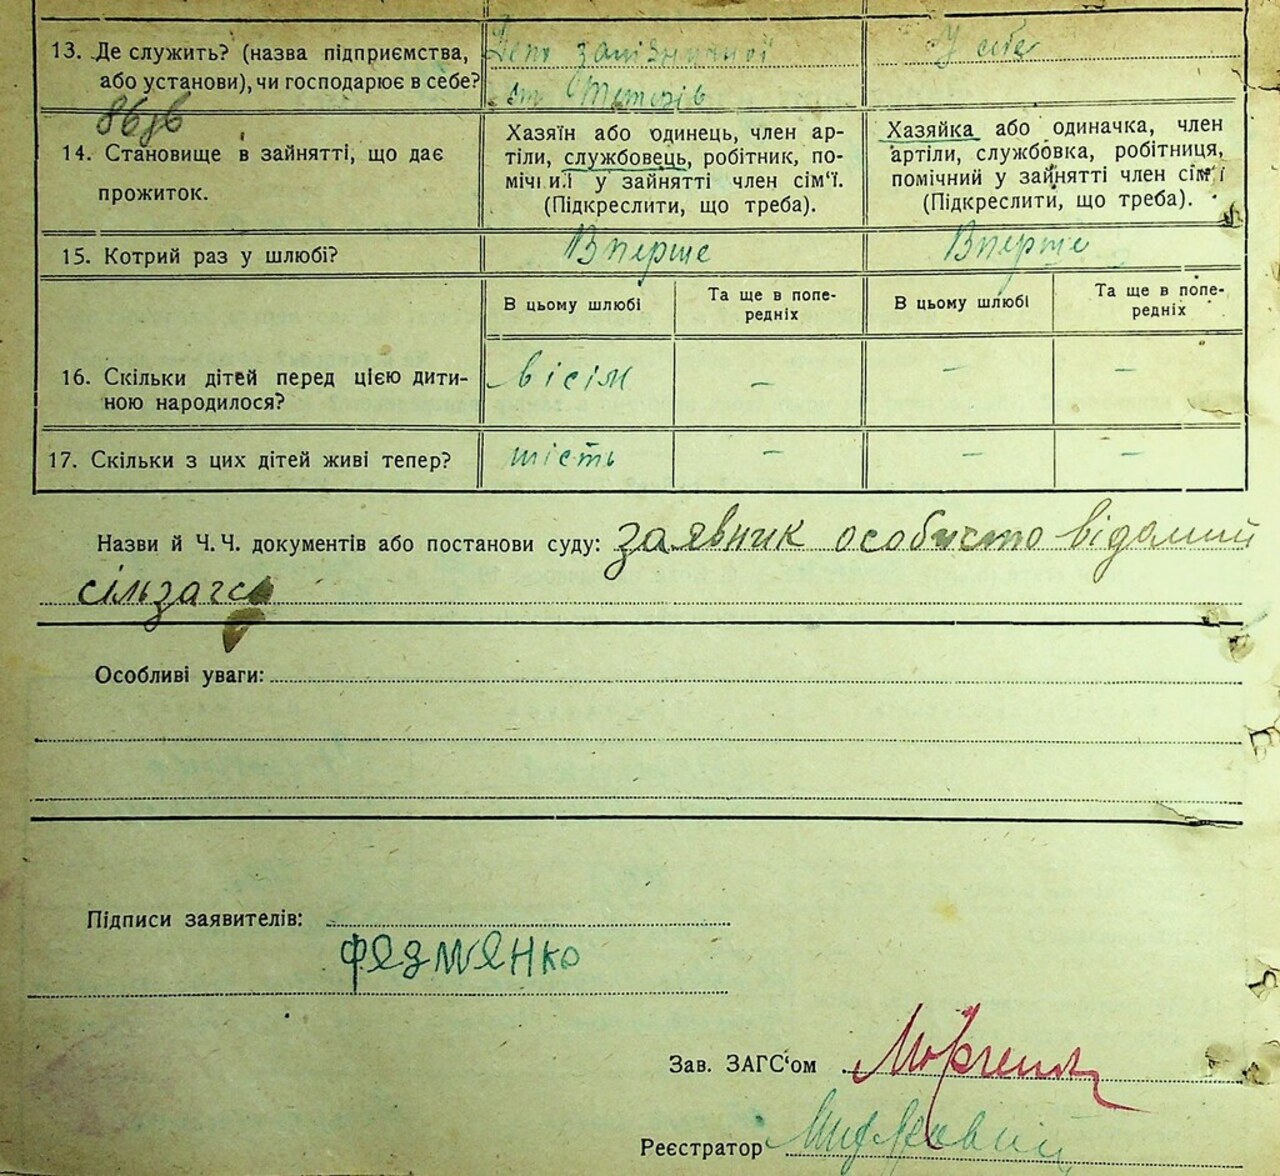 13. Де служить? (назва підприємства, Депо залізничної У себе
або установи), чи господарює в себе? ст Тетерів
14. Становище в зайнятті, що дає прожиток.
Хазяїн або одинець, член ар-
тіли, службовець, робітник, по-
мічний у зайнятті член сім'ї.
(Підкреслити, що треба).
Хазяйка або одиначка, член
артіли, службовка, робітниця,
помічний у зайнятті член сім'ї
(Підкреслити, що треба).
15. Котрий раз у шлюбі? Вперше Вперше
В цьому шлюбі Та ще в попе-
редніх В цьому шлюбі Та ще в попе-
редніх
16. Скільки дітей перед цією дити- вісім – – –
ною народилося?
17. Скільки з цих дітей живі тепер? шість – – –
Назви й Ч. Ч. документів або постанови суду: заявник особисто відомий
сільзагсо
Особливі уваги:
Підписи заявителів:
Зав. ЗАГС'ом
Реєстратор